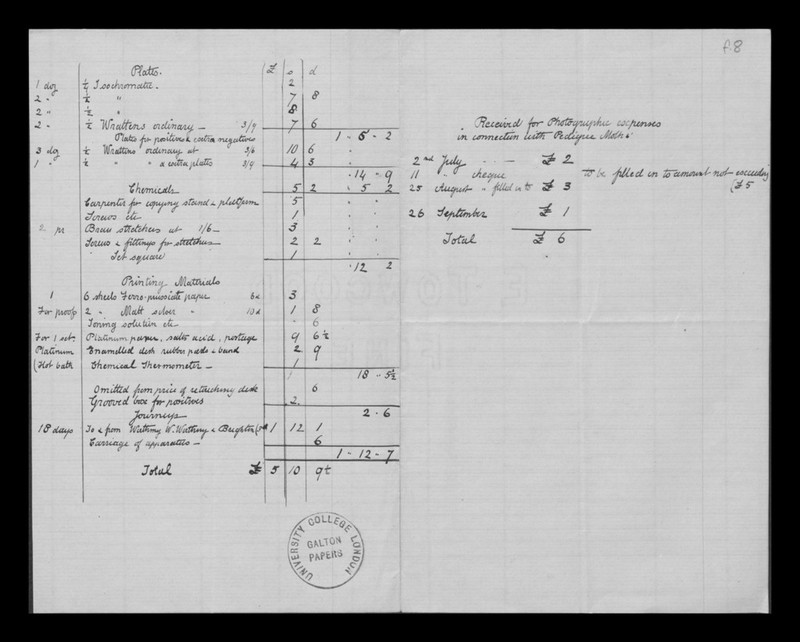 f.8
Plates. £ s d
1 doz ¼ Isochromatic - 2
2 " ½ " 7 8
2 " ½ " 8
2 " ½ Wrattens ordinary - 3/9 7 6
Plates for positives & extra negatives 1 - 5 - 2
3 doz ½ Wrattens ordinary at 3/6 10 6
1 " ½ " " & extra plates 3/9 4 3
" 14 - 9
Chemicals 5 2 " 5 2
Carpenter for copying stand & platform 5
Screws etc 1
2 pr Brass stretchers at 1/6 - 3
Screws & fittings for stretchers 2 2
Set square 1
" 12 2
Printing Materials
1 6 sheets Ferro-prussiate paper 6d 3
For proofs 2 " Matt silver " 10d 1 8
Toning solution etc 6
For 1 set. Platinum paper, salts acid, postage 9 6½
Platinum Enamelled dish rubber pads & band 2 9
(Hot bath Chemical Thermometer - 1
18 - 5½
Omitted from price of retouching desk 6
Grooved box for positives 2
2 - 6
Journeys
18 days To & from Worthing W. Worthing & Brighton 1 12 1
Carriage of apparatus - 6
1 - 12 - 7
Total £ 5 10 9½
Received for Photographic expenses
in connection with Pedigree Moths.
2nd July - - - £ 2
11 " cheque to be filled in to amount not exceeding
(£5
25 August " filled in to £ 3
26 September £ 1
Total £ 6
UNIVERSITY COLLEGE LONDON
GALTON
PAPERS